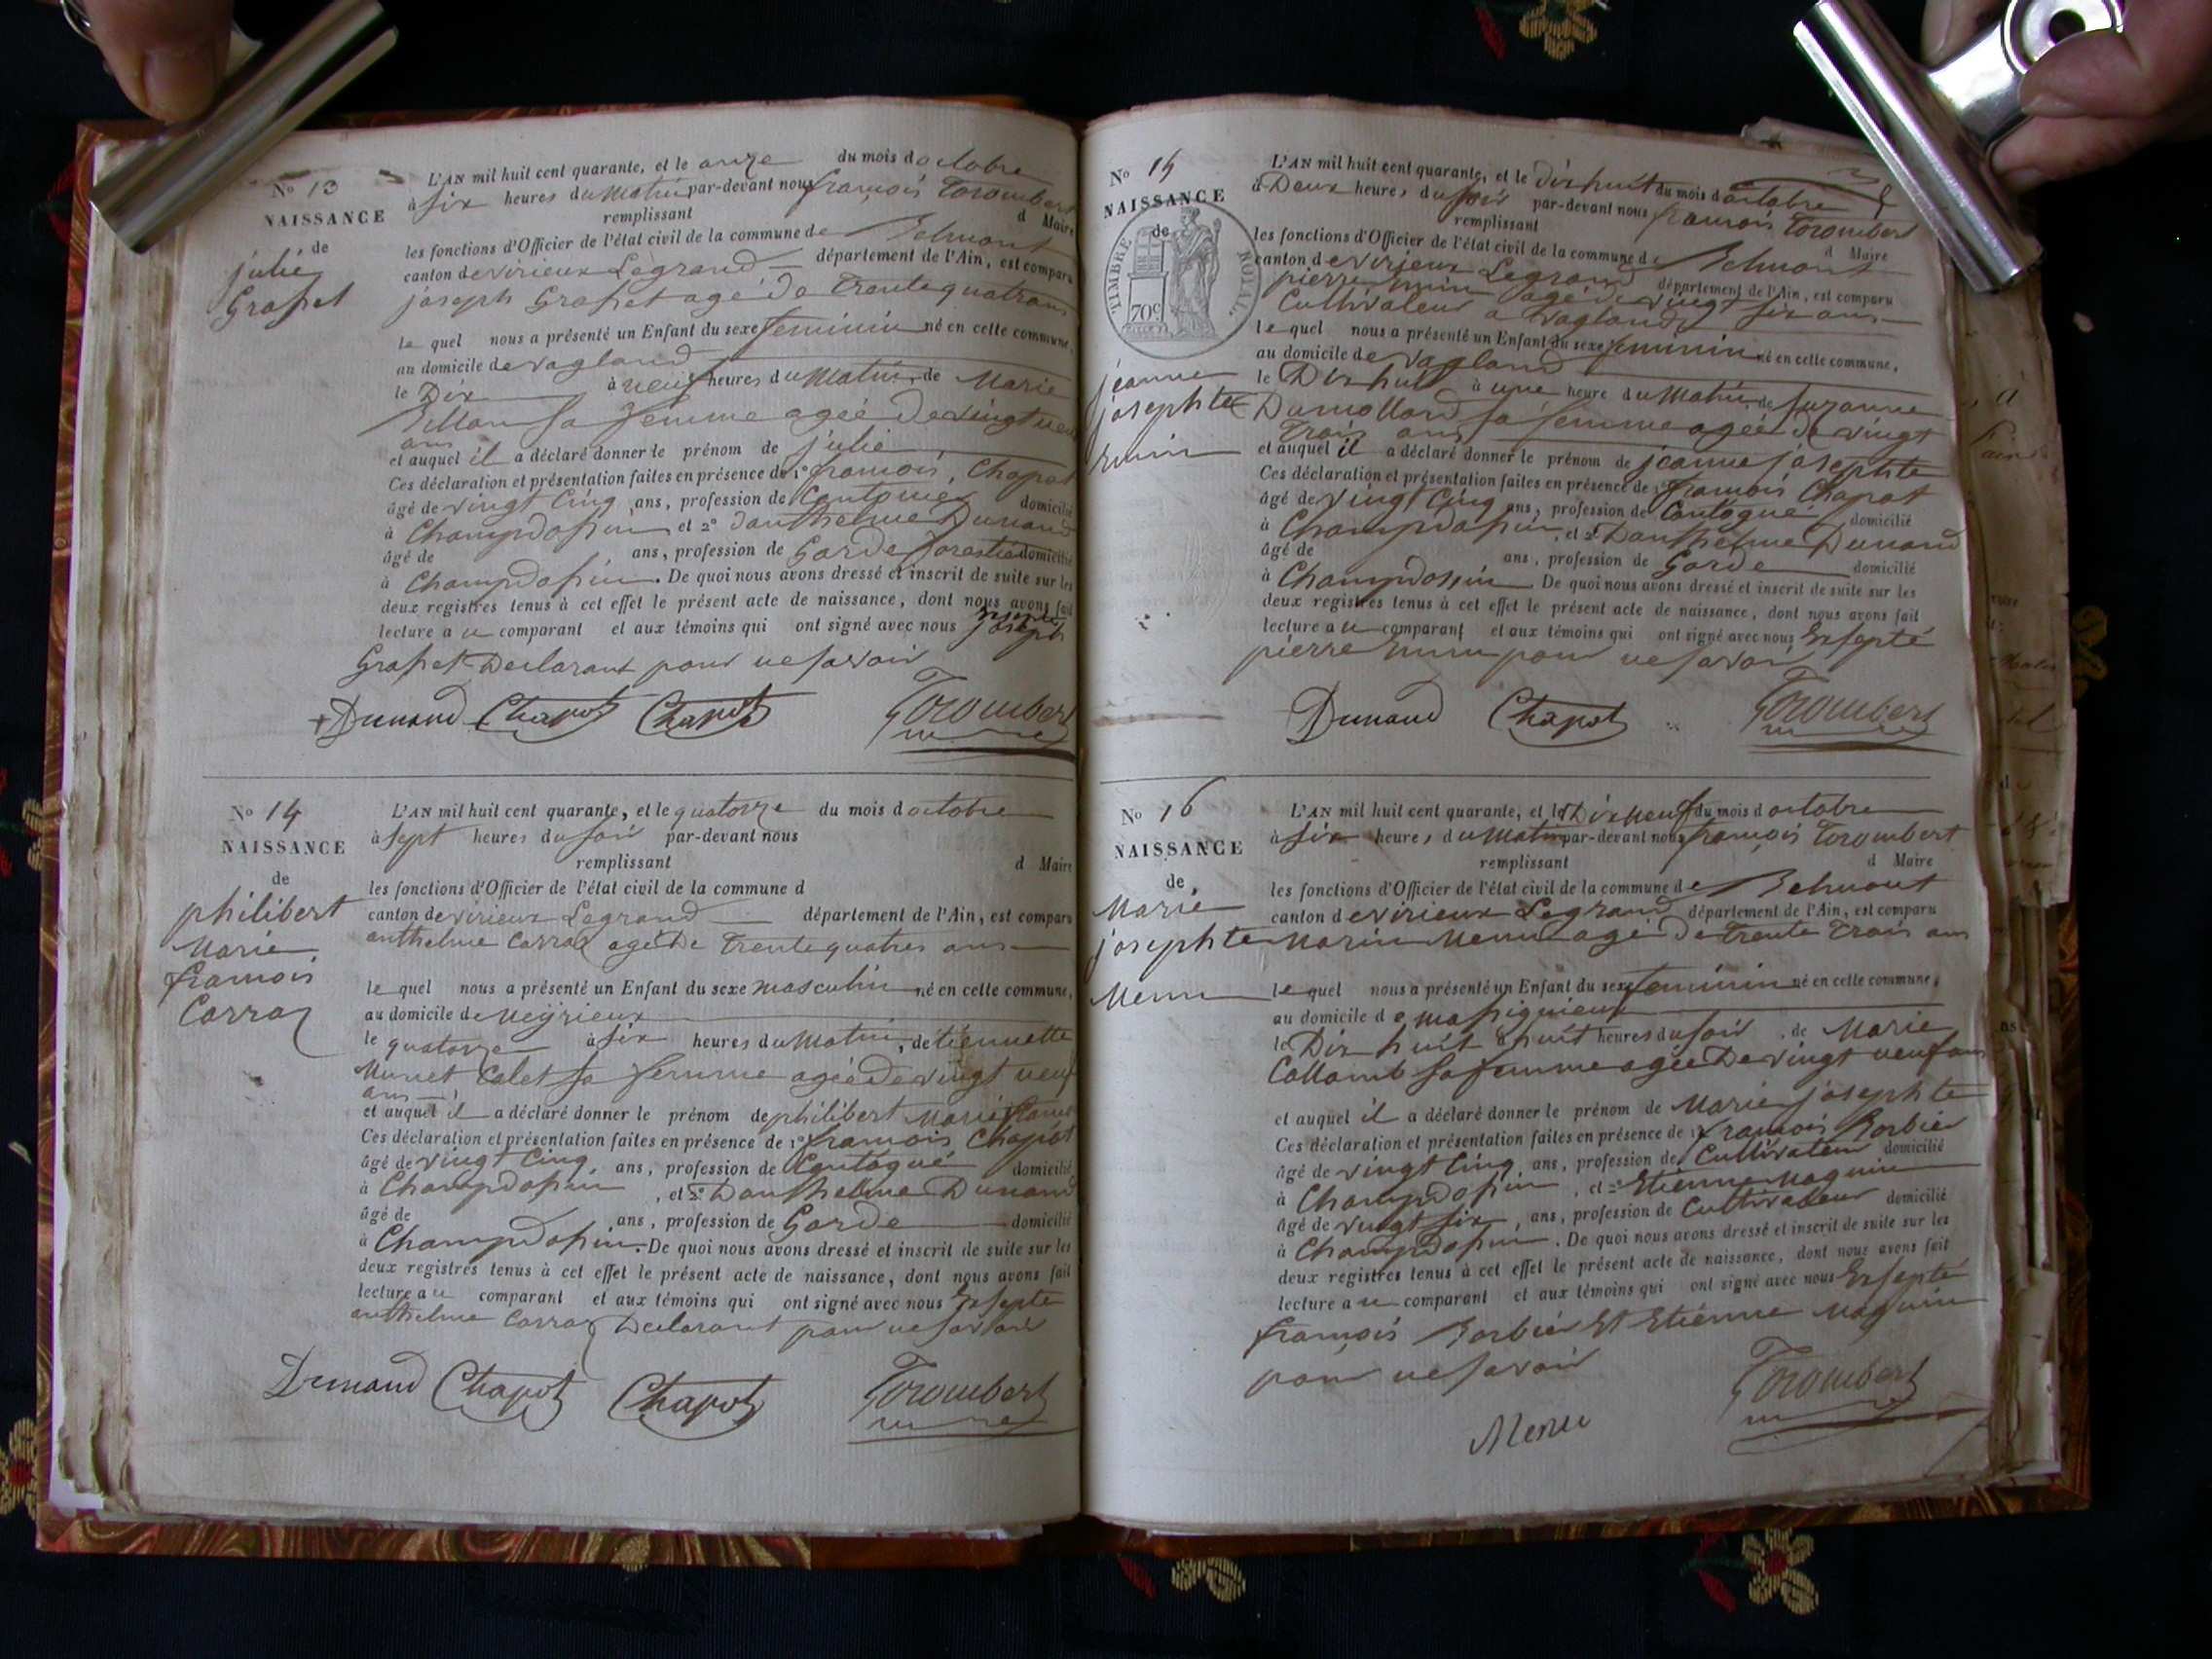 No 13
NAISSANCE
de
julie
Grosset
L'AN mil huit cent quarante, et le onze du mois d octobre
à six heures du Matin par-devant nous françois Torombert
remplissant d Maire
les fonctions d'Officier de l'état civil de la commune de Belmont
canton de virieux Legrand département de l'Ain, est comparu
joseph Grosset agé de Trente quatre ans
le quel nous a présenté un Enfant du sexe feminin né en cette commune,
au domicile de vagland
le Dix à neuf heures du Matin, de Marie
Billon sa femme ageé de vingt neuf
ans
et auquel il a déclaré donner le prénom de julie
Ces déclaration et présentation faites en présence de 1° françois Chapot
âgé de vingt Cinq ans, profession de domicilié
à Champdossin et 2° Danthelme Dunand
âgé de ans, profession de Garde forestié domicilié
à Champdossin. De quoi nous avons dressé et inscrit de suite sur les
deux registres tenus à cet effet le présent acte de naissance, dont nous avons fait
lecture a u comparant et aux témoins qui ont signé avec nous joseph
Grosset Declarant pour ne savoir
Dunand Chapot Chapot Torombert
No 14
NAISSANCE
de
philibert
Marie
françois
Carraz
L'AN mil huit cent quarante, et le quatorze du mois d octobre
à sept heures du soir par-devant nous
remplissant d Maire
les fonctions d'Officier de l'état civil de la commune d
canton de virieux Legrand département de l'Ain, est comparu
anthelme Carraz agé De Trente quatres ans
le quel nous a présenté un Enfant du sexe masculin né en cette commune,
au domicile de neyrieux
le quatorze à six heures du Matin, de tiennette
Munet Calet sa femme ageé de vingt neuf
ans
et auquel il a déclaré donner le prénom de philibert Marie
Ces déclaration et présentation faites en présence de 1° françois Chapot
âgé de vingt Cinq ans, profession de domicilié
à Champdossin, et 2° Danthelme Dunand
âgé de ans, profession de Garde domicilié
à Champdossin. De quoi nous avons dressé et inscrit de suite sur les
deux registres tenus à cet effet le présent acte de naissance, dont nous avons fait
lecture a u comparant et aux témoins qui ont signé avec nous Exsepté
anthelme Carraz Declarant pour ne savoir
Dunand Chapot Chapot Torombert
No 15
NAISSANCE
de
TIMBRE ROYAL
70c
jeanne
josephte
L'AN mil huit cent quarante, et le dix huit du mois d octobre
à Deux heures du soir par-devant nous françois Torombert
remplissant d Maire
les fonctions d'Officier de l'état civil de la commune de Belmont
canton de virieux Legrand département de l'Ain, est comparu
pierre agé de vingt six ans
Cultivateur a vagland
le quel nous a présenté un Enfant du sexe feminin né en cette commune,
au domicile de vagland
le Dix huit à une heure du Matin, de suzanne
Dumollard sa femme ageé de vingt
Trois ans
et auquel il a déclaré donner le prénom de jeanne josephte
Ces déclaration et présentation faites en présence de 1° françois Chapot
âgé de vingt Cinq ans, profession de domicilié
à Champdossin, et 2° Danthelme Dunand
âgé de ans, profession de Garde domicilié
à Champdossin De quoi nous avons dressé et inscrit de suite sur les
deux registres tenus à cet effet le présent acte de naissance, dont nous avons fait
lecture a u comparant et aux témoins qui ont signé avec nous Exsepté
pierre pour ne savoir
Dunand Chapot Torombert
No 16
NAISSANCE
de
Marie
josephte
Menu
L'AN mil huit cent quarante, et le Dix neuf du mois d octobre
à six heures du Matin par-devant nous françois Torombert
remplissant d Maire
les fonctions d'Officier de l'état civil de la commune de Belmont
canton de virieux Legrand département de l'Ain, est comparu
Marin Menu agé De Trente Trois ans
le quel nous a présenté un Enfant du sexe feminin né en cette commune,
au domicile de massignieux
le Dix huit à huit heures du soir, de Marie
Collomb sa femme ageé De vingt neuf ans
et auquel il a déclaré donner le prénom de Marie josephte
Ces déclaration et présentation faites en présence de 1° françois Barbier
âgé de vingt Cinq ans, profession de Cultivateur domicilié
à Champdossin, et 2° Etienne Maguin
âgé de vingt six, ans, profession de Cultivateur domicilié
à Champdossin. De quoi nous avons dressé et inscrit de suite sur les
deux registres tenus à cet effet le présent acte de naissance, dont nous avons fait
lecture a u comparant et aux témoins qui ont signé avec nous Exsepté
françois Barbier Et Etienne Maguin
pour ne savoir
Menu Torombert